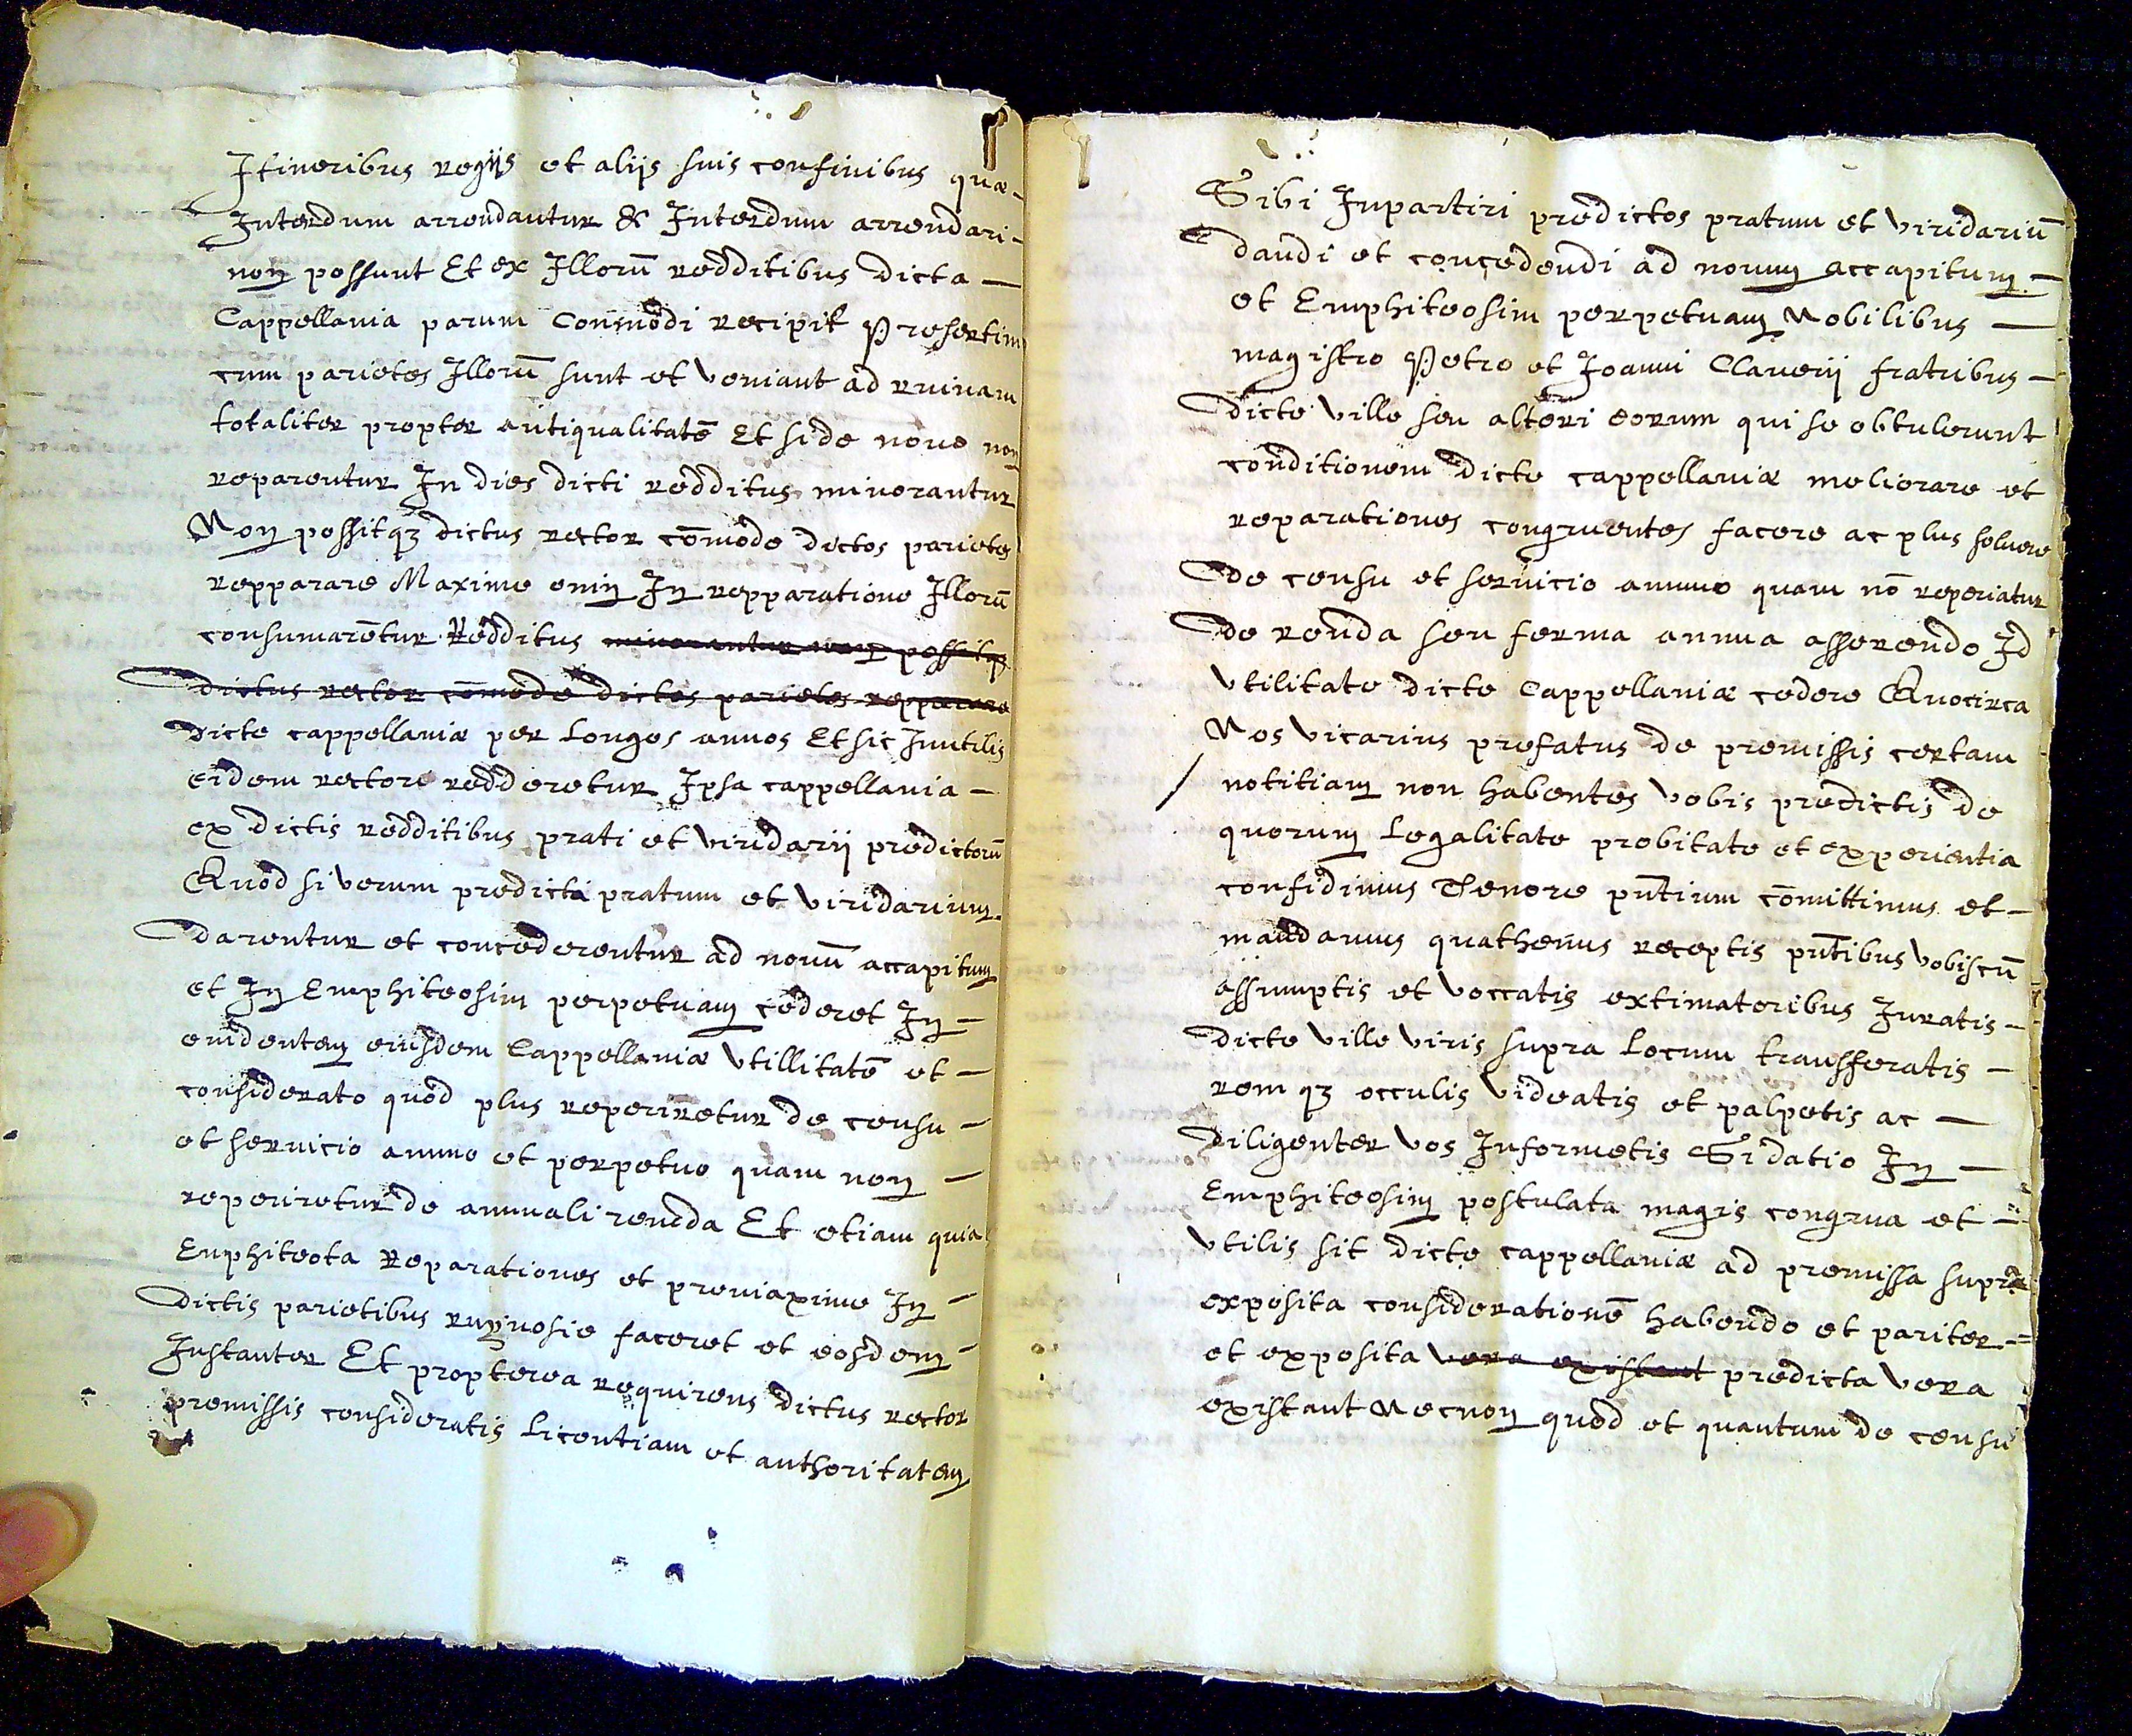 Itineribus regijs et alijs suis confinibus quæ-
Interdum arrendantur & Interdum arrendari-
non possunt Et ex Illorū redditibus dicta —
Cappellania parum Commodi recipit Presertim
cum parietes Illorū sunt et veniant ad ruinam
totaliter propter antiqualitatē Et si de novo non
reparentur In dies dicti redditus minorantur
Non possitqꝫ dictus rector cōmode dictos parietes
repparare Maxime enim In repparatione Illorū
consumarētur Redditus minorantur non possitqꝫ
dictus rector cōmode dictos parietes repparare
dicte cappellaniæ per longos annos Et sic Inutilis
eidem rectore redderetur Ipsa cappellania —
ex dictis redditibus prati et viridarij predictorū
Quod si verum predicta pratum et viridarium
darentur et concederentur ad nouū accapitum
et In Emphiteosim perpetuam cederet In —
euidentem eiusdem Cappellaniæ vtillitatē et —
considerato quod plus reperiretur de censu —
et seruicio annuo et perpetuo quam non —
reperiretur de annuali renda Et etiam quia
Enphiteota Reparationes et promaxime In —
dictis parietibus ruynosie faceret et eosdem —
Instanter Et propterea requirens dictus rector
premissis consideratis licentiam et authoritatem
Sibi Inpartiri predictos pratum et viridariū
dandi et concedendi ad nouum accapitum —
et Emphiteosim perpetuam Nobilibus —
magistro Petro et Joanni Clauerij fratribus —
dicte ville seu alteri eorum qui se obtulerunt
conditionem dicte cappellaniæ meliorare et
reparationes congruentes facere ac plus soluere
de censu et seruicio annuo quam nō reperiatur
de renda seu ferma annua asserendo Id
vtilitate dicte Cappellaniæ cedere Quocirca
Nos vicarius prefatus de premissis certam
notitiam non habentes vobis predictis de
quorum legalitate probitate et experientia
confidimus Tenore pn̄tium cōmittimus et —
mandamus quathenus receptis pn̄tibus vobiscū
assumptis et voccatis extimatoribus Juratis —
dicte ville viris supra locum transferatis —
rem qꝫ occulis videatis et palpetis ac —
diligenter vos Informetis Si datio In —
Emphiteosim postulata magis congrua et —
vtilis sit dicte cappellaniæ ad premissa supra
exposita considerationē habendo et pariter —
et exposita vera existant predicta vera
existant Necnon quod et quantum de censu